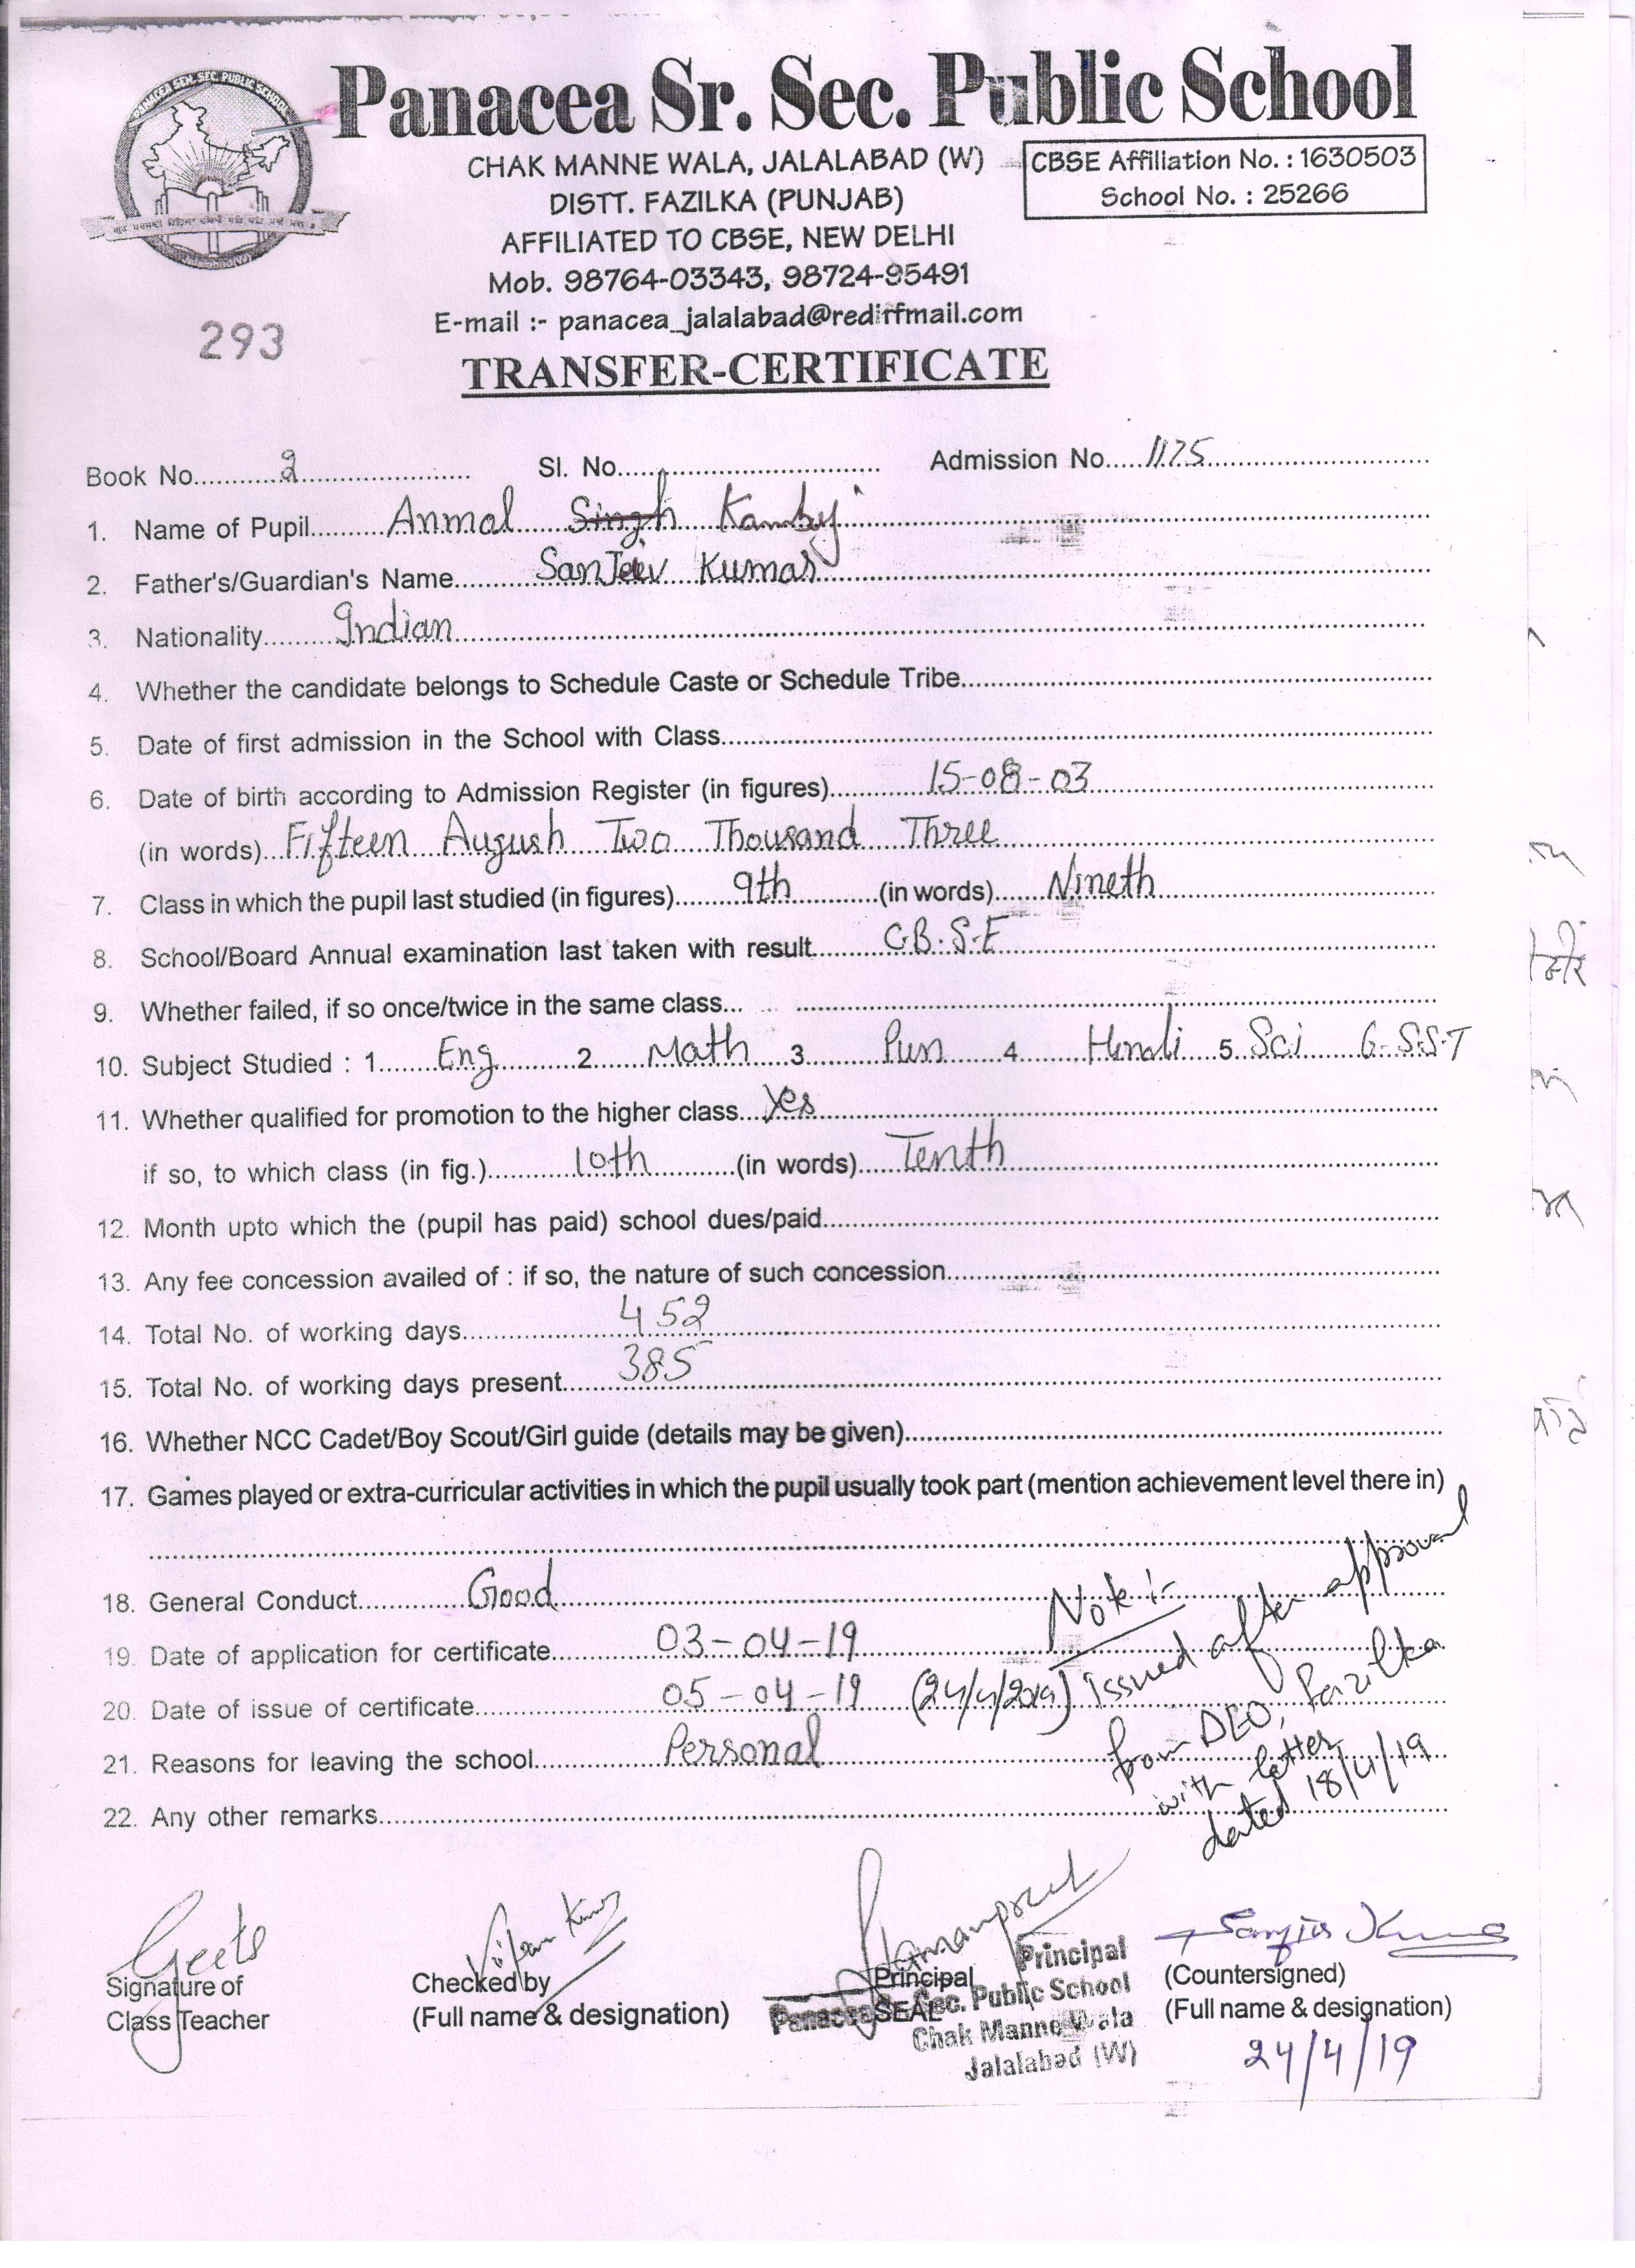 PANACEA SEN. SEC. PUBLIC SCHOOL
Jalalabad(W)
Panacea Sr. Sec. Public School
CHAK MANNE WALA, JALALABAD (W)
DISTT. FAZILKA (PUNJAB)
AFFILIATED TO CBSE, NEW DELHI
Mob. 98764-03343, 98724-95491
E-mail :- panacea_jalalabad@redirfmail.com
CBSE Affiliation No. : 1630503
School No. : 25266
293
TRANSFER-CERTIFICATE
Book No. 2 Sl. No. Admission No. 1175
1. Name of Pupil Anmol Singh Kamboj
2. Father's/Guardian's Name SanJeev Kumar
3. Nationality Indian
4. Whether the candidate belongs to Schedule Caste or Schedule Tribe
5. Date of first admission in the School with Class
6. Date of birth according to Admission Register (in figures) 15-08-03
(in words) Fifteen August Two Thousand Three
7. Class in which the pupil last studied (in figures) 9th (in words) Nineth
8. School/Board Annual examination last taken with result C.B.S.E
9. Whether failed, if so once/twice in the same class
10. Subject Studied : 1 Eng 2 Math 3 Pun 4 Hindi 5 Sci 6-S.S.T
11. Whether qualified for promotion to the higher class Yes
if so, to which class (in fig.) 10th (in words) Tenth
12. Month upto which the (pupil has paid) school dues/paid
13. Any fee concession availed of : if so, the nature of such concession
14. Total No. of working days 452
15. Total No. of working days present 385
16. Whether NCC Cadet/Boy Scout/Girl guide (details may be given)
17. Games played or extra-curricular activities in which the pupil usually took part (mention achievement level there in)
18. General Conduct Good
19. Date of application for certificate 03-04-19
20. Date of issue of certificate 05-04-19 (24/4/2019)
21. Reasons for leaving the school Personal
22. Any other remarks
Note :-
Issued after approval
from DEO, Fazilka
with letter
dated 18/4/19
Geeta
Signature of
Class Teacher
Checked by
(Full name & designation)
Principal
SEAL
Principal
Panacea Sr. Sec. Public School
Chak Manne Wala
Jalalabad (W)
(Countersigned)
(Full name & designation)
24/4/19